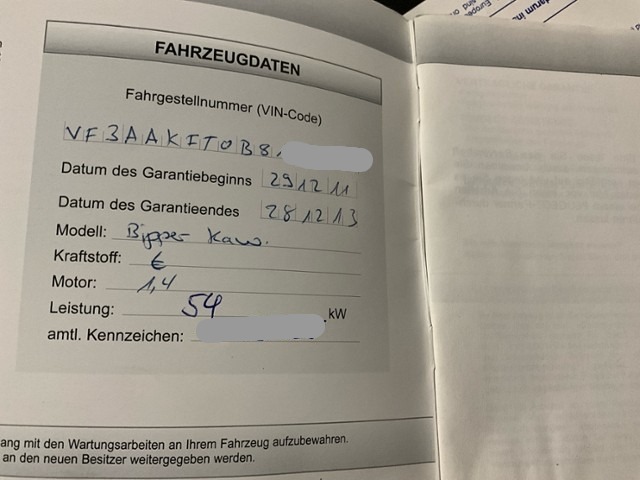 FAHRZEUGDATEN
Fahrgestellnummer (VIN-Code)
VF3AAKFT0B8
Datum des Garantiebeginns 29 12 11
Datum des Garantieendes 28 12 13
Modell: Bipper Kaw.
Kraftstoff: €
Motor: 1,4
Leistung: 54 kW
amtl. Kennzeichen:
ang mit den Wartungsarbeiten an Ihrem Fahrzeug aufzubewahren.
an den neuen Besitzer weitergegeben werden.